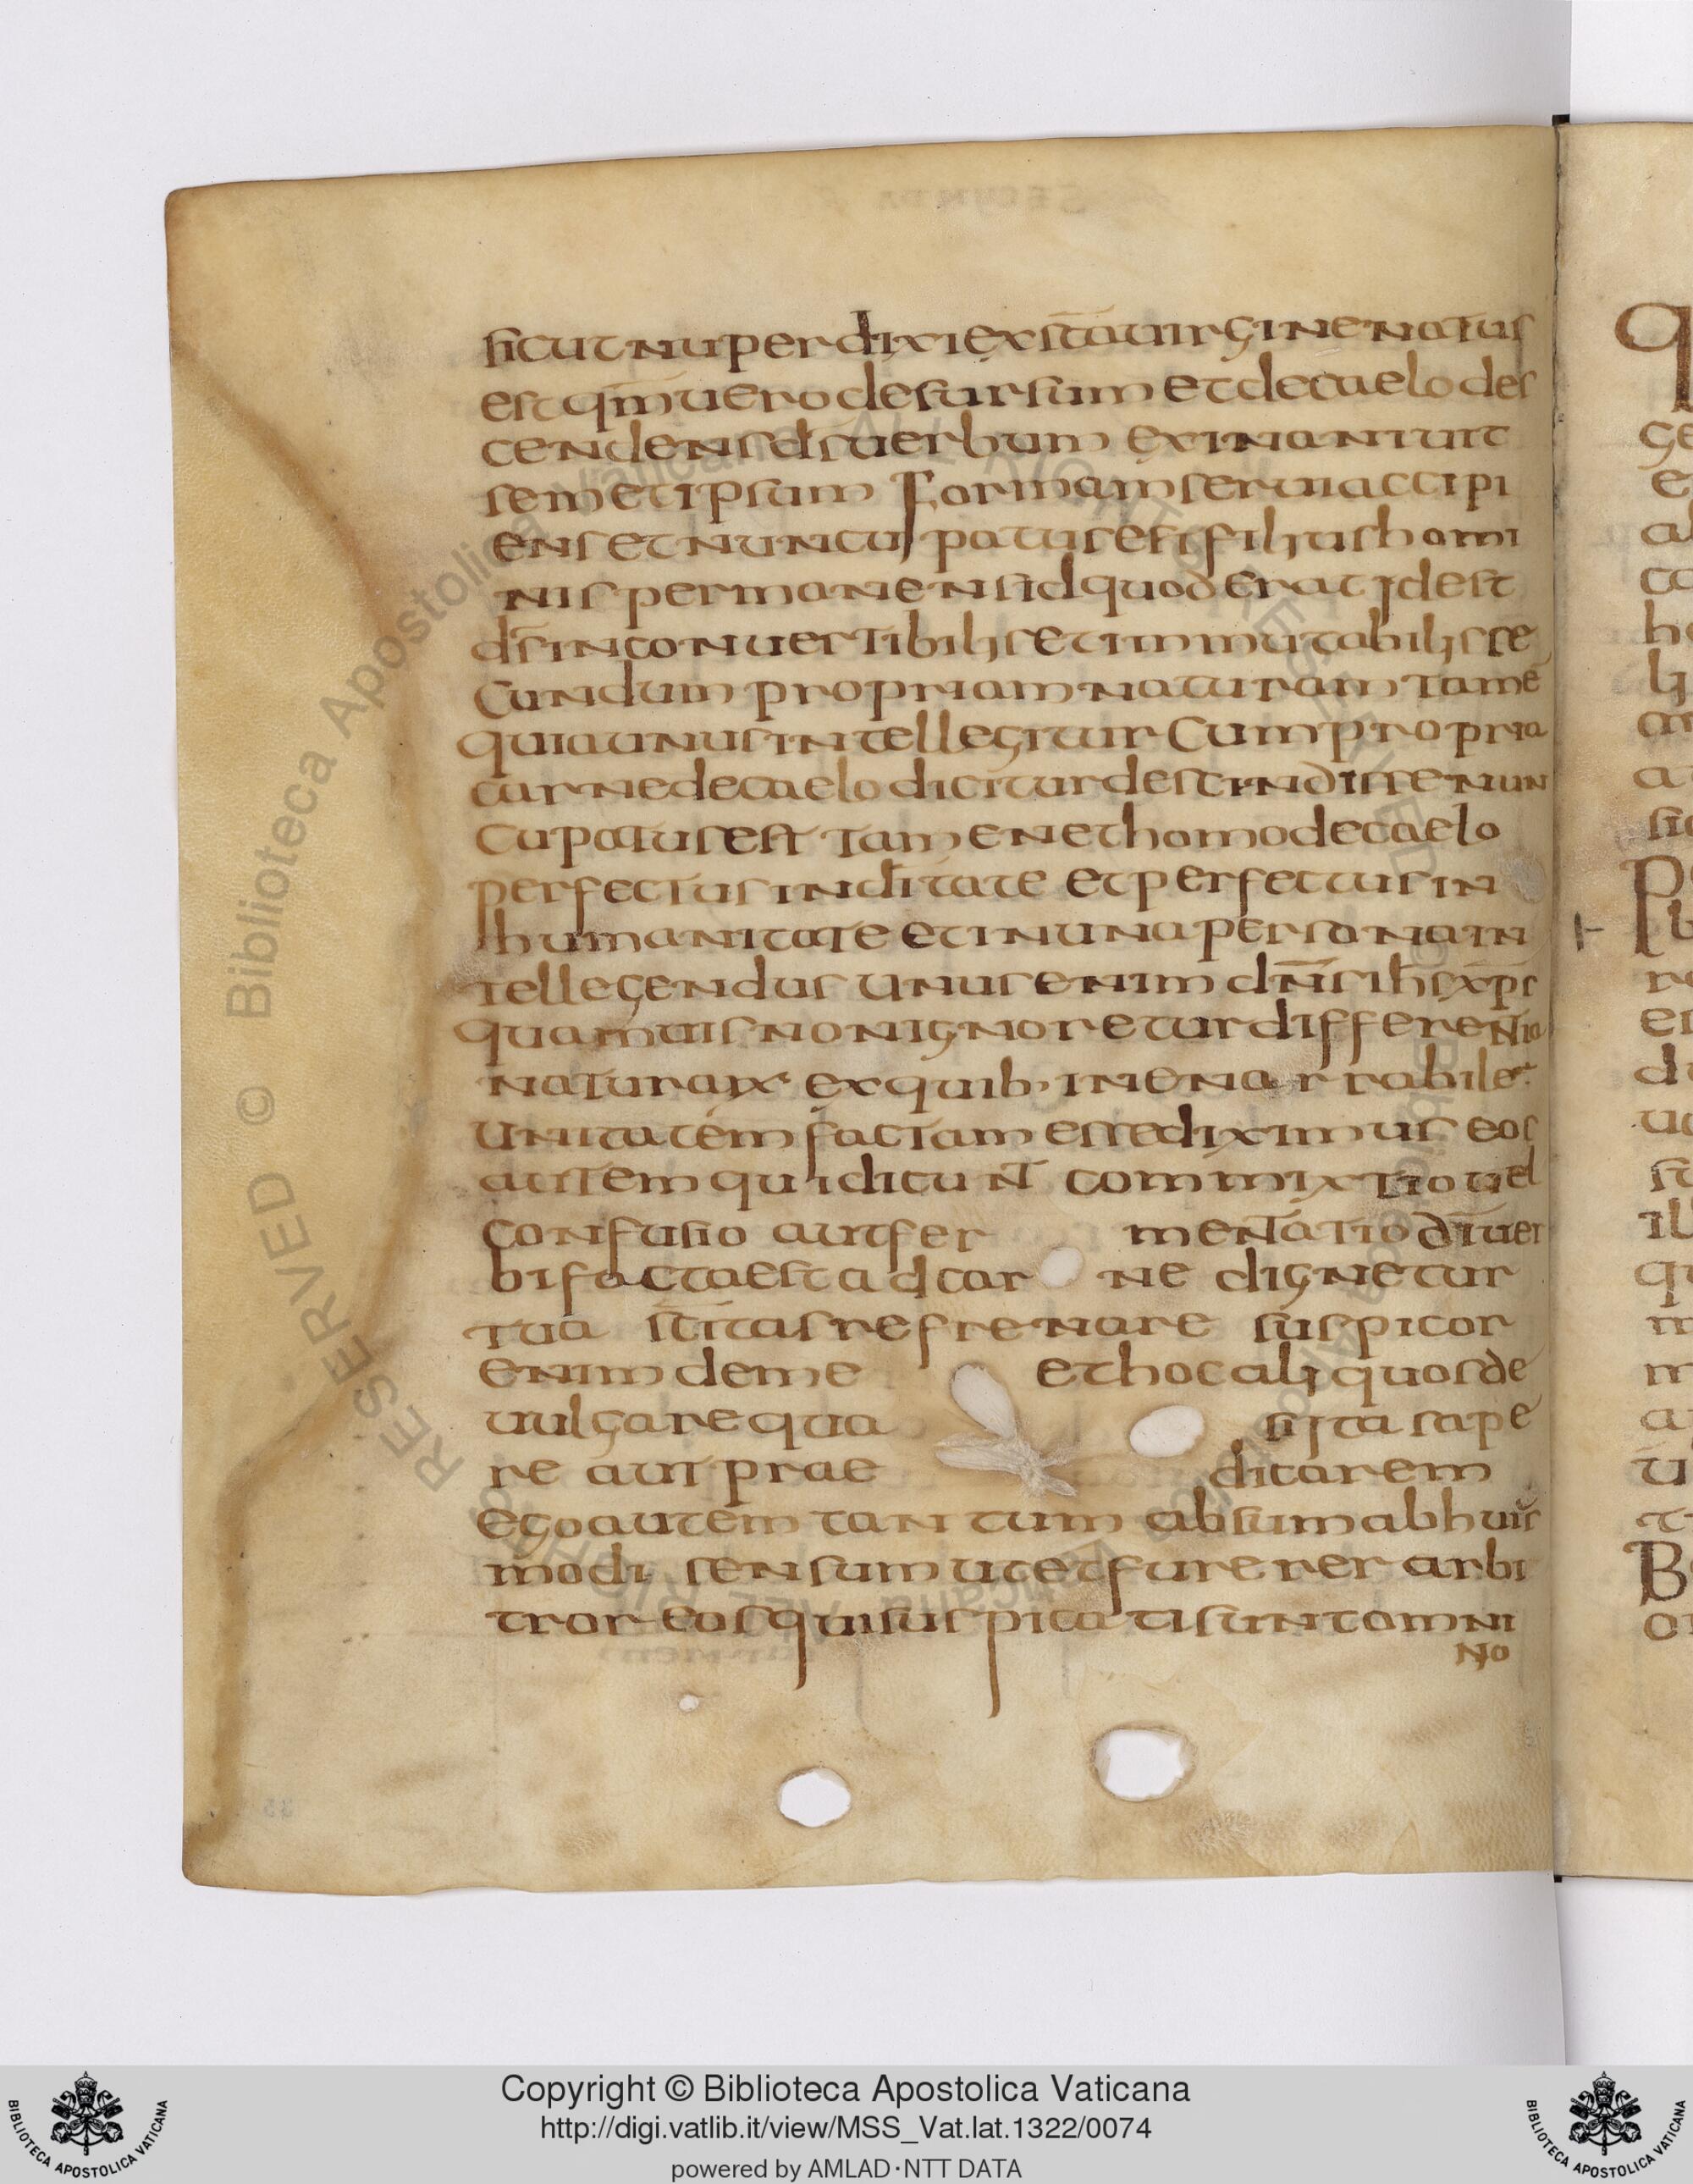 sicut nuper dixi ex sc̄a uirgine natus
est qm̄ uero desursum et de caelo des
cendens d̄s uerbum exinaniuit
semetipsum formam serui accipi
ens et nuncupatus est filius homi
nis permanens id quod erat id est
d̄s inconuertibilis et immutabilis se
cundum propriam naturam tamē
quia unus intellegitur cum propria
carne de caelo dicitur descindisse nun
cupatus est tamen et homo de caelo
perfectus in dī̄tate et perfectus in
humanitate et in una persona in
tellegendus unus enim dn̄s ih̄s xp̄s
quamuis non ignoretur differentia
naturarum ex quib· inenarrabilem
unitatem factam esse diximus eos
autem qui dicunt commixtio uel
confusio aut fermentatio dī̄ uer
bi facta est ad carne dignetur
tua sc̄itas refrenare suspicor
enim de me et hoc aliquos de
uulgare quasi ita sape
re aut praedicarem
ego autem tantum absum ab huis
modi sensum ut et furerer arbi
tror eos qui suspicati sunt omni
no
Copyright © Biblioteca Apostolica Vaticana
http://digi.vatlib.it/view/MSS_Vat.lat.1322/0074
powered by AMLAD·NTT DATA
BIBLIOTECA APOSTOLICA VATICANA
BIBLIOTECA APOSTOLICA VATICANA